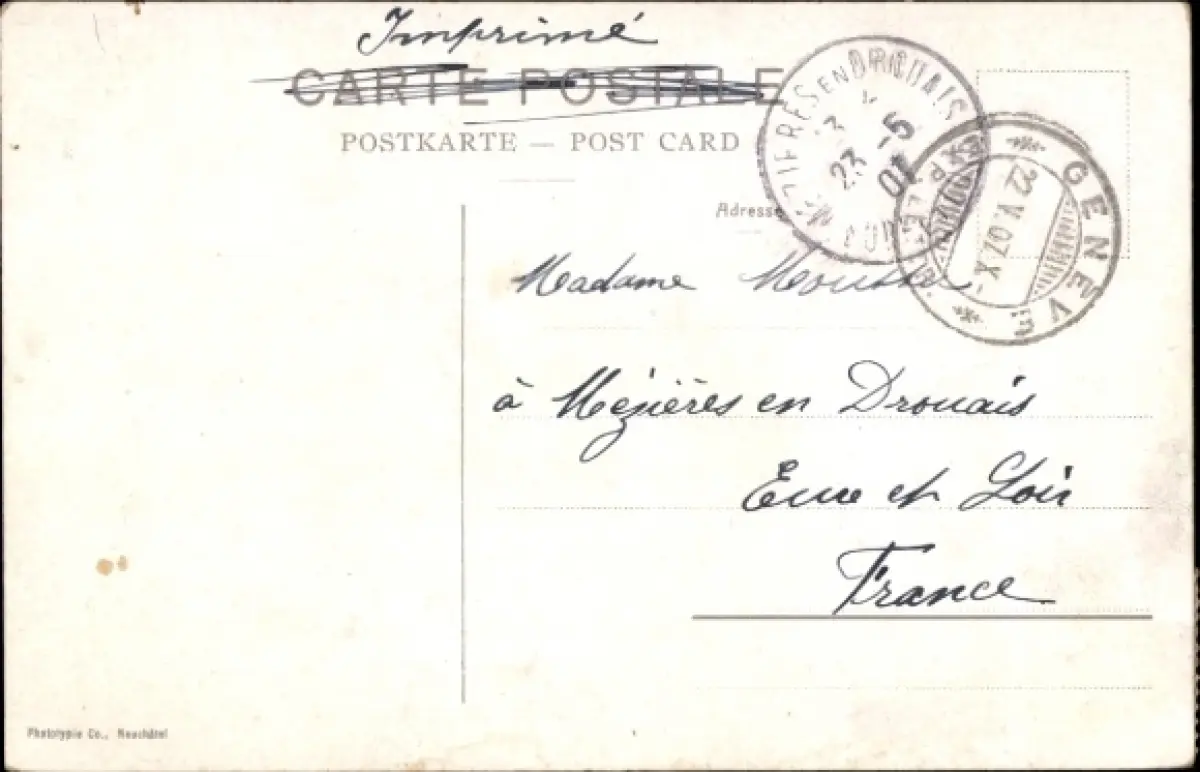 Imprimé
CARTE POSTALE
POSTKARTE — POST CARD
MÉZIÈRES EN DROUAIS
23 -5
07
GENÈVE
EXP. LET.
22.V.07.X-
Adresse
Madame
à Mézières en Drouais
Eure et Loir
France
Phototypie Co., Neuchâtel